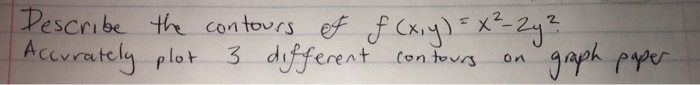 Describe the contours of f(x,y) = x²-2y².
Accurately plot 3 different contours on graph paper